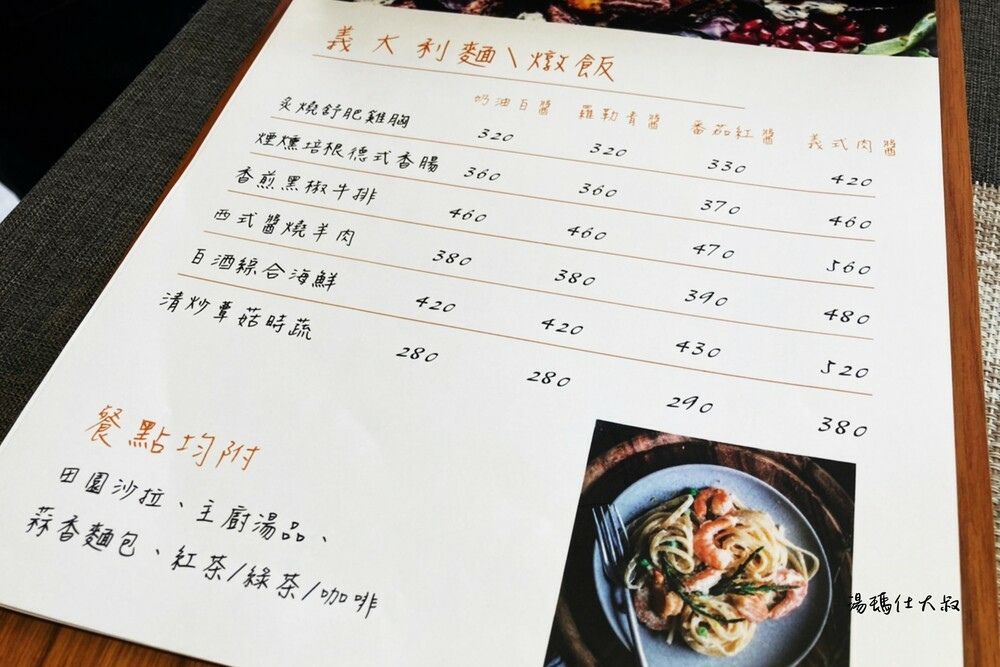 義大利麵\燉飯
奶油白醬 羅勒青醬 番茄紅醬 義式肉醬
炙燒舒肥雞胸 320 320 330 420
煙燻培根德式香腸 360 360 370 460
香煎黑椒牛排 460 460 470 560
西式醬燒羊肉 380 380 390 480
白酒綜合海鮮 420 420 430 520
清炒蕈菇時蔬 280 280 290 380
餐點均附
田園沙拉、主廚湯品、
蒜香麵包、紅茶/綠茶/咖啡
湯瑪仕大叔